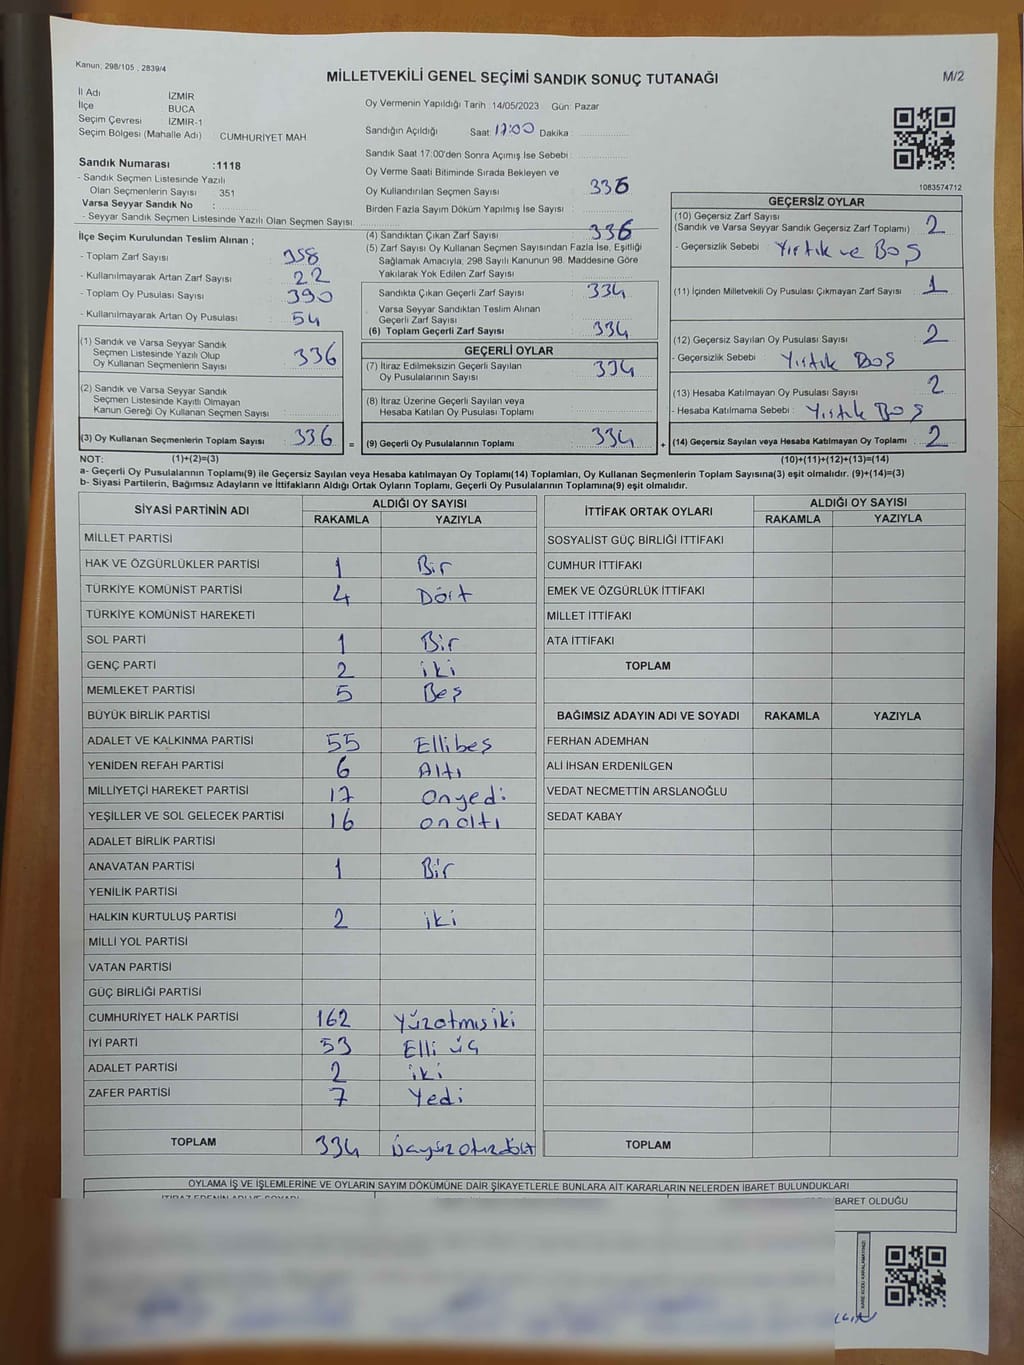 Kanun; 298/105 , 2839/4
MİLLETVEKİLİ GENEL SEÇİMİ SANDIK SONUÇ TUTANAĞI
M/2
İl Adı İZMİR
İlçe BUCA
Seçim Çevresi İZMİR-1
Seçim Bölgesi (Mahalle Adı) CUMHURİYET MAH
Sandık Numarası :1118
- Sandık Seçmen Listesinde Yazılı
Olan Seçmenlerin Sayısı 351
Varsa Seyyar Sandık No :
- Seyyar Sandık Seçmen Listesinde Yazılı Olan Seçmen Sayısı
İlçe Seçim Kurulundan Teslim Alınan ;
- Toplam Zarf Sayısı : 358
- Kullanılmayarak Artan Zarf Sayısı : 22
- Toplam Oy Pusulası Sayısı : 390
- Kullanılmayarak Artan Oy Pusulası : 54
(1) Sandık ve Varsa Seyyar Sandık
Seçmen Listesinde Yazılı Olup
Oy Kullanan Seçmenlerin Sayısı 336
(2) Sandık ve Varsa Seyyar Sandık
Seçmen Listesinde Kayıtlı Olmayan
Kanun Gereği Oy Kullanan Seçmen Sayısı
(3) Oy Kullanan Seçmenlerin Toplam Sayısı 336 =
Oy Vermenin Yapıldığı Tarih :14/05/2023 Gün: Pazar
Sandığın Açıldığı Saat: 17:00 Dakika :
Sandık Saat 17:00'den Sonra Açımış İse Sebebi :
Oy Verme Saati Bitiminde Sırada Bekleyen ve
Oy Kullandırılan Seçmen Sayısı : 336
Birden Fazla Sayım Döküm Yapılmış İse Sayısı :
(4) Sandıktan Çıkan Zarf Sayısı : 336
(5) Zarf Sayısı Oy Kullanan Seçmen Sayısından Fazla İse, Eşitliği
Sağlamak Amacıyla, 298 Sayılı Kanunun 98. Maddesine Göre
Yakılarak Yok Edilen Zarf Sayısı :
Sandıkta Çıkan Geçerli Zarf Sayısı : 334
Varsa Seyyar Sandıktan Teslim Alınan
Geçerli Zarf Sayısı :
(6) Toplam Geçerli Zarf Sayısı : 334
GEÇERLİ OYLAR
(7) İtiraz Edilmeksizin Geçerli Sayılan
Oy Pusulalarının Sayısı : 334
(8) İtiraz Üzerine Geçerli Sayılan veya
Hesaba Katılan Oy Pusulası Toplamı
(9) Geçerli Oy Pusulalarının Toplamı 334 +
1083574712
GEÇERSİZ OYLAR
(10) Geçersiz Zarf Sayısı
(Sandık ve Varsa Seyyar Sandık Geçersiz Zarf Toplamı) : 2
- Geçersizlik Sebebi : Yırtık ve Boş
(11) İçinden Milletvekili Oy Pusulası Çıkmayan Zarf Sayısı : 1
(12) Geçersiz Sayılan Oy Pusulası Sayısı : 2
- Geçersizlik Sebebi : Yırtık Boş
(13) Hesaba Katılmayan Oy Pusulası Sayısı : 2
- Hesaba Katılmama Sebebi : Yırtık Boş
(14) Geçersiz Sayılan veya Hesaba Katılmayan Oy Toplamı 2
NOT: (1)+(2)=(3) (10)+(11)+(12)+(13)=(14)
a- Geçerli Oy Pusulalarının Toplamı(9) ile Geçersiz Sayılan veya Hesaba katılmayan Oy Toplamı(14) Toplamları, Oy Kullanan Seçmenlerin Toplam Sayısına(3) eşit olmalıdır. (9)+(14)=(3)
b- Siyasi Partilerin, Bağımsız Adayların ve İttifakların Aldığı Ortak Oyların Toplamı, Geçerli Oy Pusulalarının Toplamına(9) eşit olmalıdır.
SİYASİ PARTİNİN ADI ALDIĞI OY SAYISI
RAKAMLA YAZIYLA
MİLLET PARTİSİ
HAK VE ÖZGÜRLÜKLER PARTİSİ 1 Bir
TÜRKİYE KOMÜNİST PARTİSİ 4 Dört
TÜRKİYE KOMÜNİST HAREKETİ
SOL PARTİ 1 Bir
GENÇ PARTİ 2 iki
MEMLEKET PARTİSİ 5 Beş
BÜYÜK BİRLİK PARTİSİ
ADALET VE KALKINMA PARTİSİ 55 Ellibeş
YENİDEN REFAH PARTİSİ 6 Altı
MİLLİYETÇİ HAREKET PARTİSİ 17 Onyedi
YEŞİLLER VE SOL GELECEK PARTİSİ 16 onaltı
ADALET BİRLİK PARTİSİ
ANAVATAN PARTİSİ 1 Bir
YENİLİK PARTİSİ
HALKIN KURTULUŞ PARTİSİ 2 iki
MİLLİ YOL PARTİSİ
VATAN PARTİSİ
GÜÇ BİRLİĞİ PARTİSİ
CUMHURİYET HALK PARTİSİ 162 Yüzatmışiki
İYİ PARTİ 53 Elli üç
ADALET PARTİSİ 2 iki
ZAFER PARTİSİ 7 Yedi
TOPLAM 334 Üçyüzotuzdört
İTTİFAK ORTAK OYLARI ALDIĞI OY SAYISI
RAKAMLA YAZIYLA
SOSYALİST GÜÇ BİRLİĞİ İTTİFAKI
CUMHUR İTTİFAKI
EMEK VE ÖZGÜRLÜK İTTİFAKI
MİLLET İTTİFAKI
ATA İTTİFAKI
TOPLAM
BAĞIMSIZ ADAYIN ADI VE SOYADI RAKAMLA YAZIYLA
FERHAN ADEMHAN
ALİ İHSAN ERDENİLGEN
VEDAT NECMETTİN ARSLANOĞLU
SEDAT KABAY
TOPLAM
OYLAMA İŞ VE İŞLEMLERİNE VE OYLARIN SAYIM DÖKÜMÜNE DAİR ŞİKAYETLERLE BUNLARA AİT KARARLARIN NELERDEN İBARET BULUNDUKLARI
İTİRAZ EDENİN ADI VE SOYADI
BARET OLDUĞU
KARE KODU KARALAMAYINIZ!